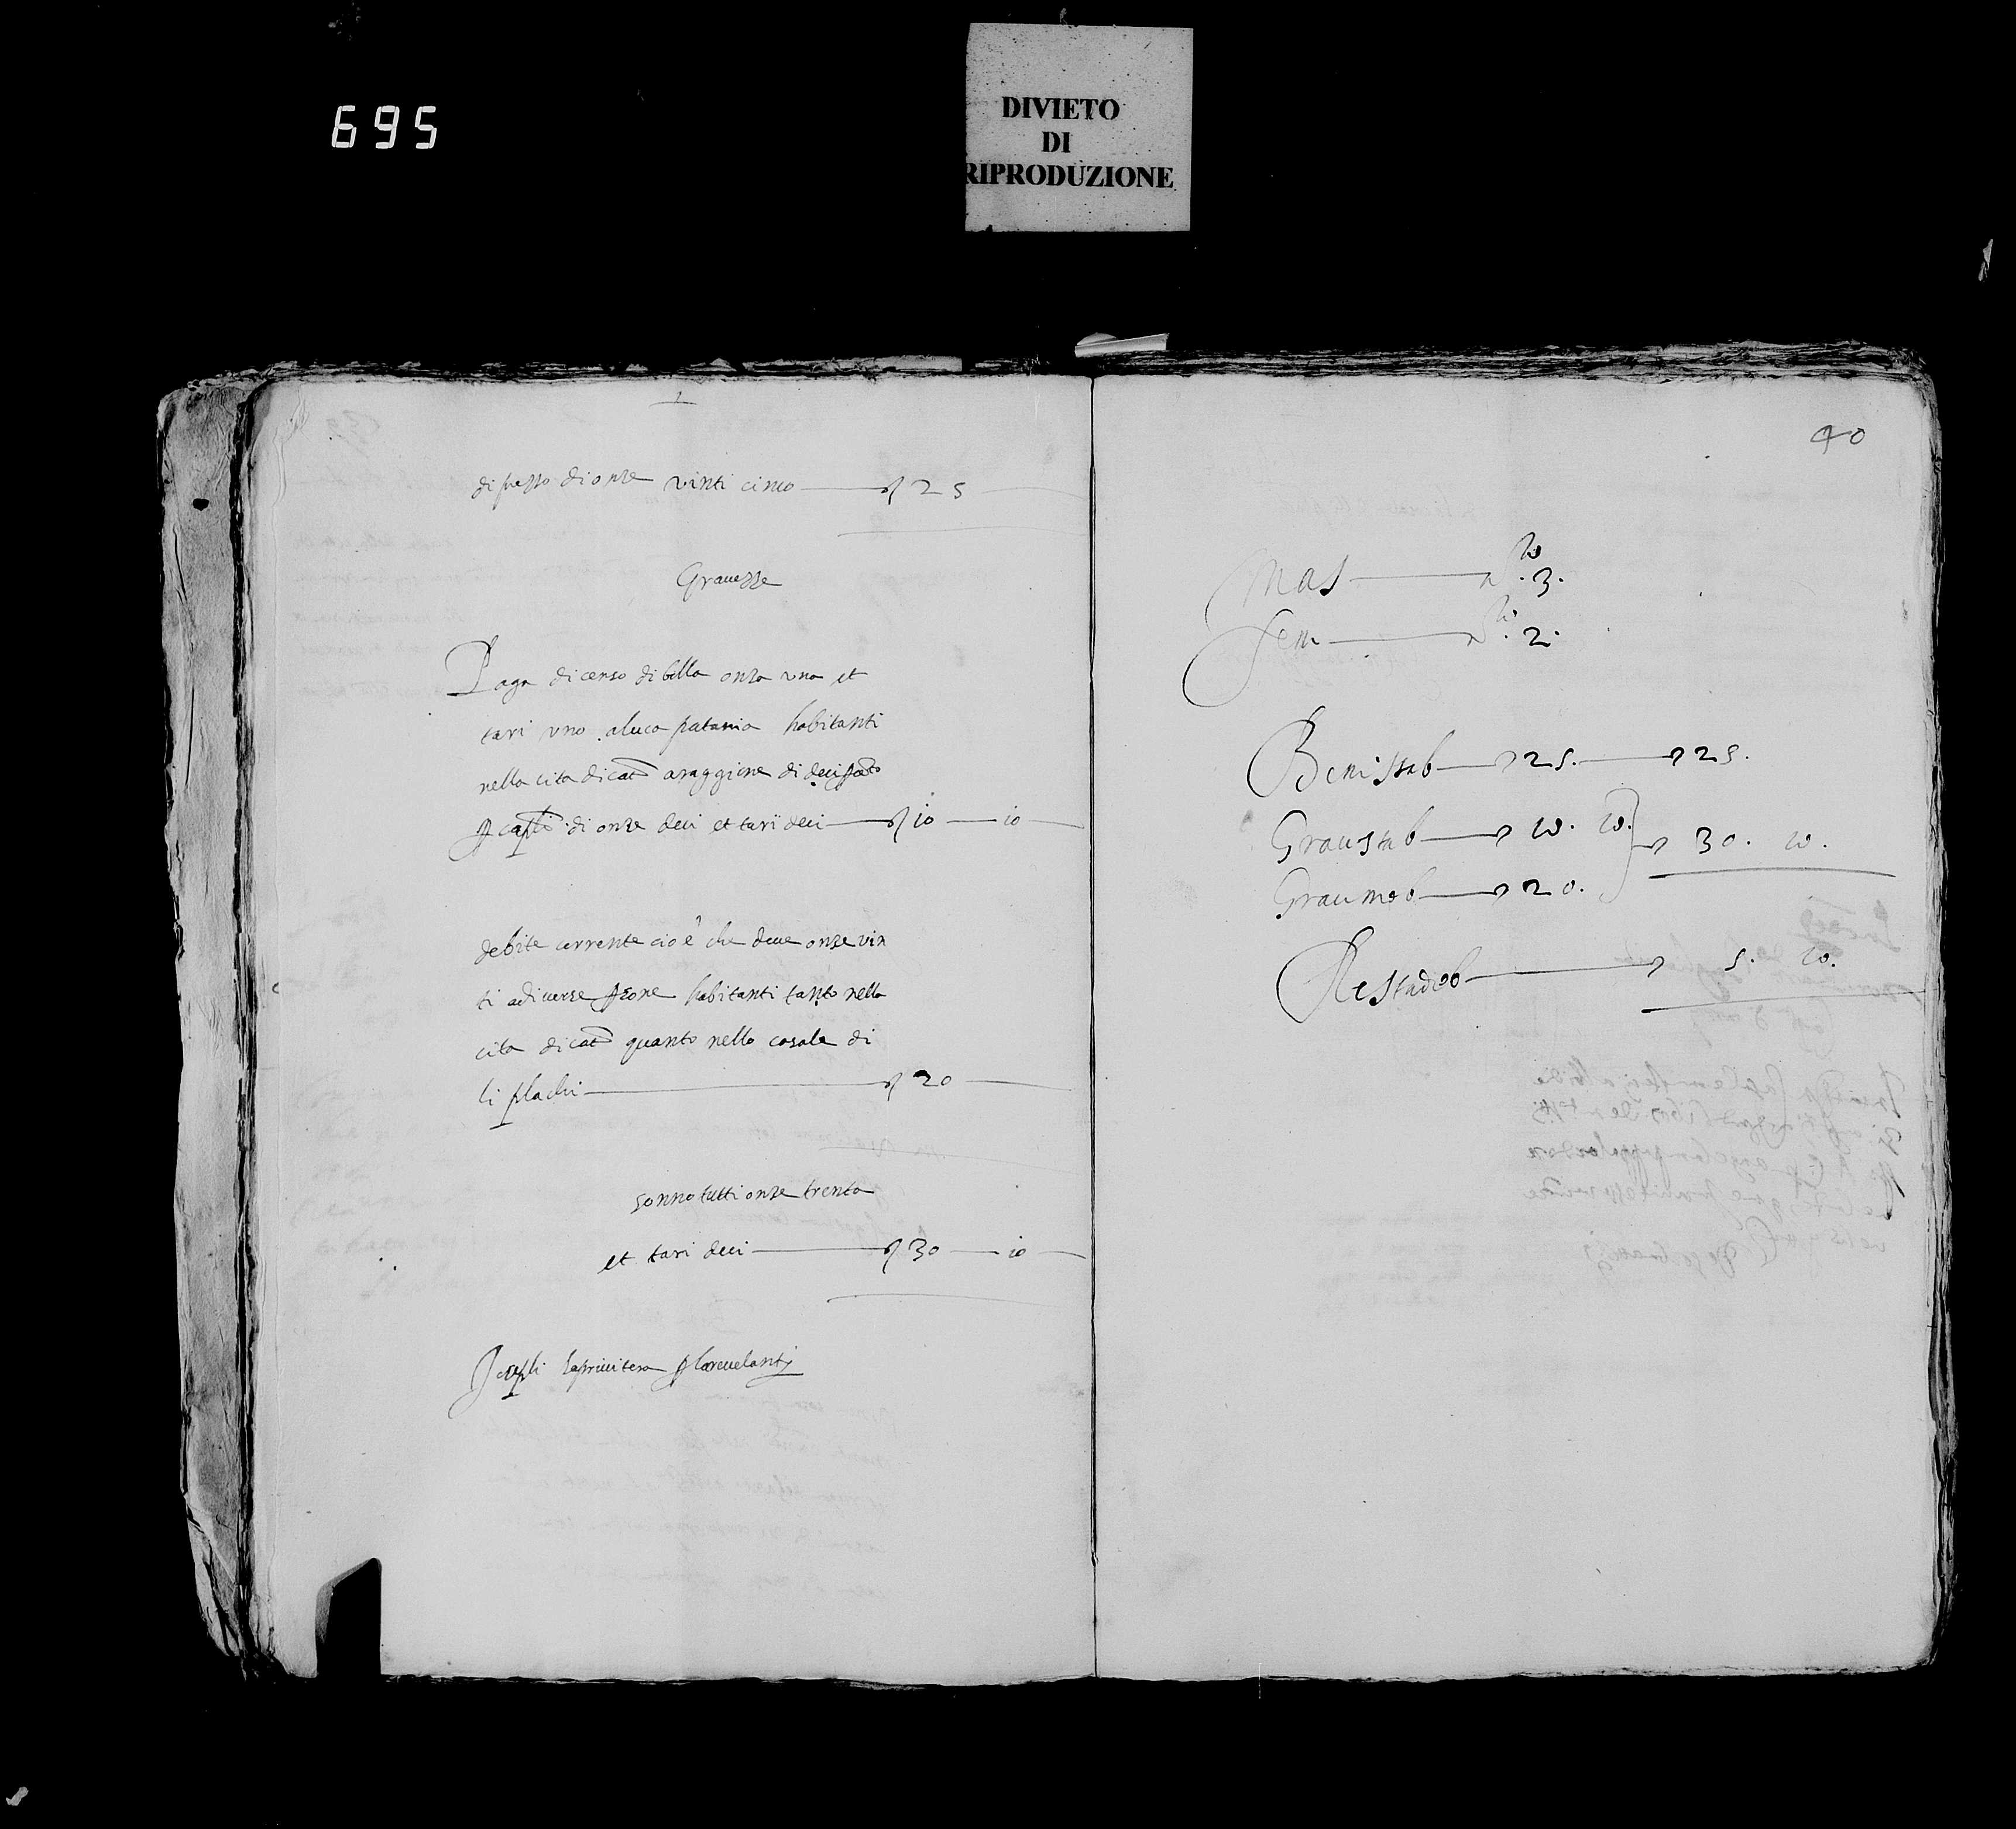 695
DIVIETO
DI
RIPRODUZIONE
di prezzo di onze vinti cinco — 25
Gravezze
Paga di censo di bolla onza una et
tari uno aluca patania habitanti
nella cita di cat.a araggione di deci
di onze deci et tari deci — 10 — 10
debite currente cio è che deve onze vin
ti adiverse psone habitanti tanto nella
cita di cat.a quanto nello casale di
li plachi — 20
sonno tutti onze trenta
et tari deci — 30 — 10
Joseppi laprivitera revelanti
40
Mas — n.ro 3.
Fem — n.ro 2.
Beni stab — 25. — 25.
Grau stab — 10. 10. } 30. 10.
Grau mob — 20.
Resta deb — 5. 10.